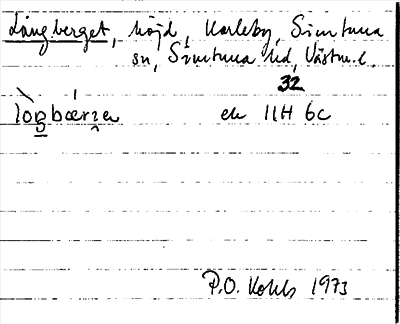 Långberget, höjd, Karleby, Simtuna
sn, Simtuna hd, Västm.l.
32
lòŋbærȷe ek 11H 6c
P.O. 1973